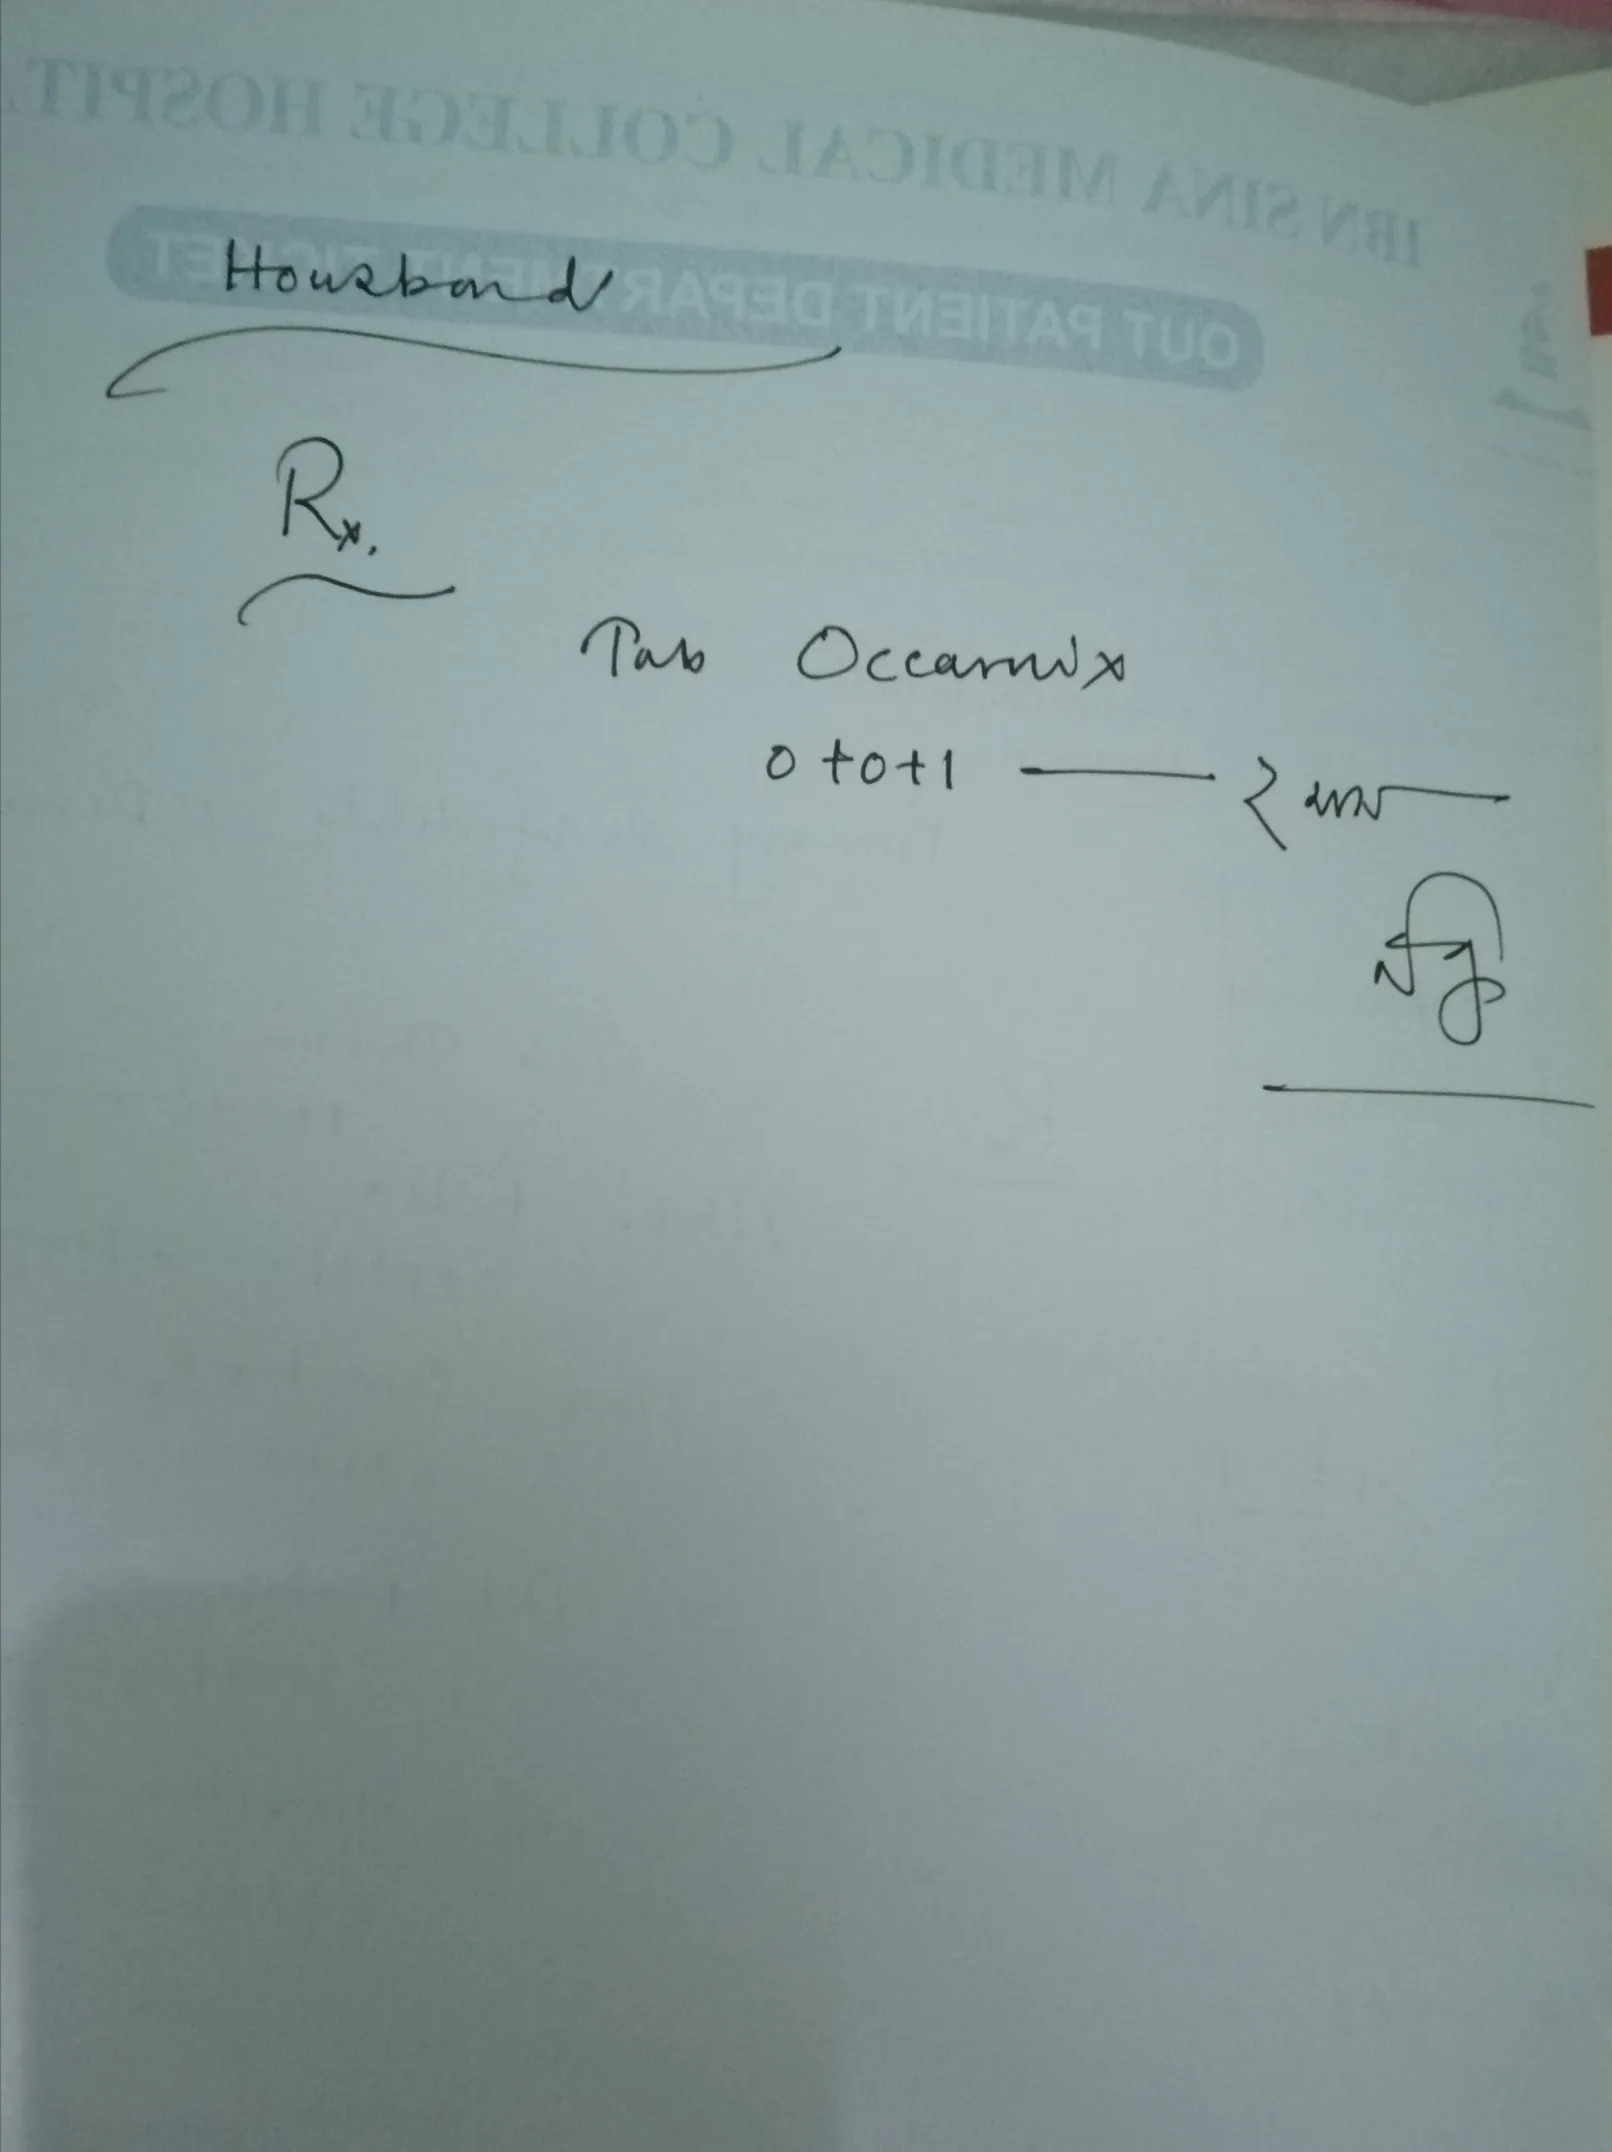 IBN SINA MEDICAL COLLEGE HOSPIT
OUT PATIENT DEPARTMENT TICKET
Housband
Rx.
Tab Occarnix
0+0+1 — ২ মাস